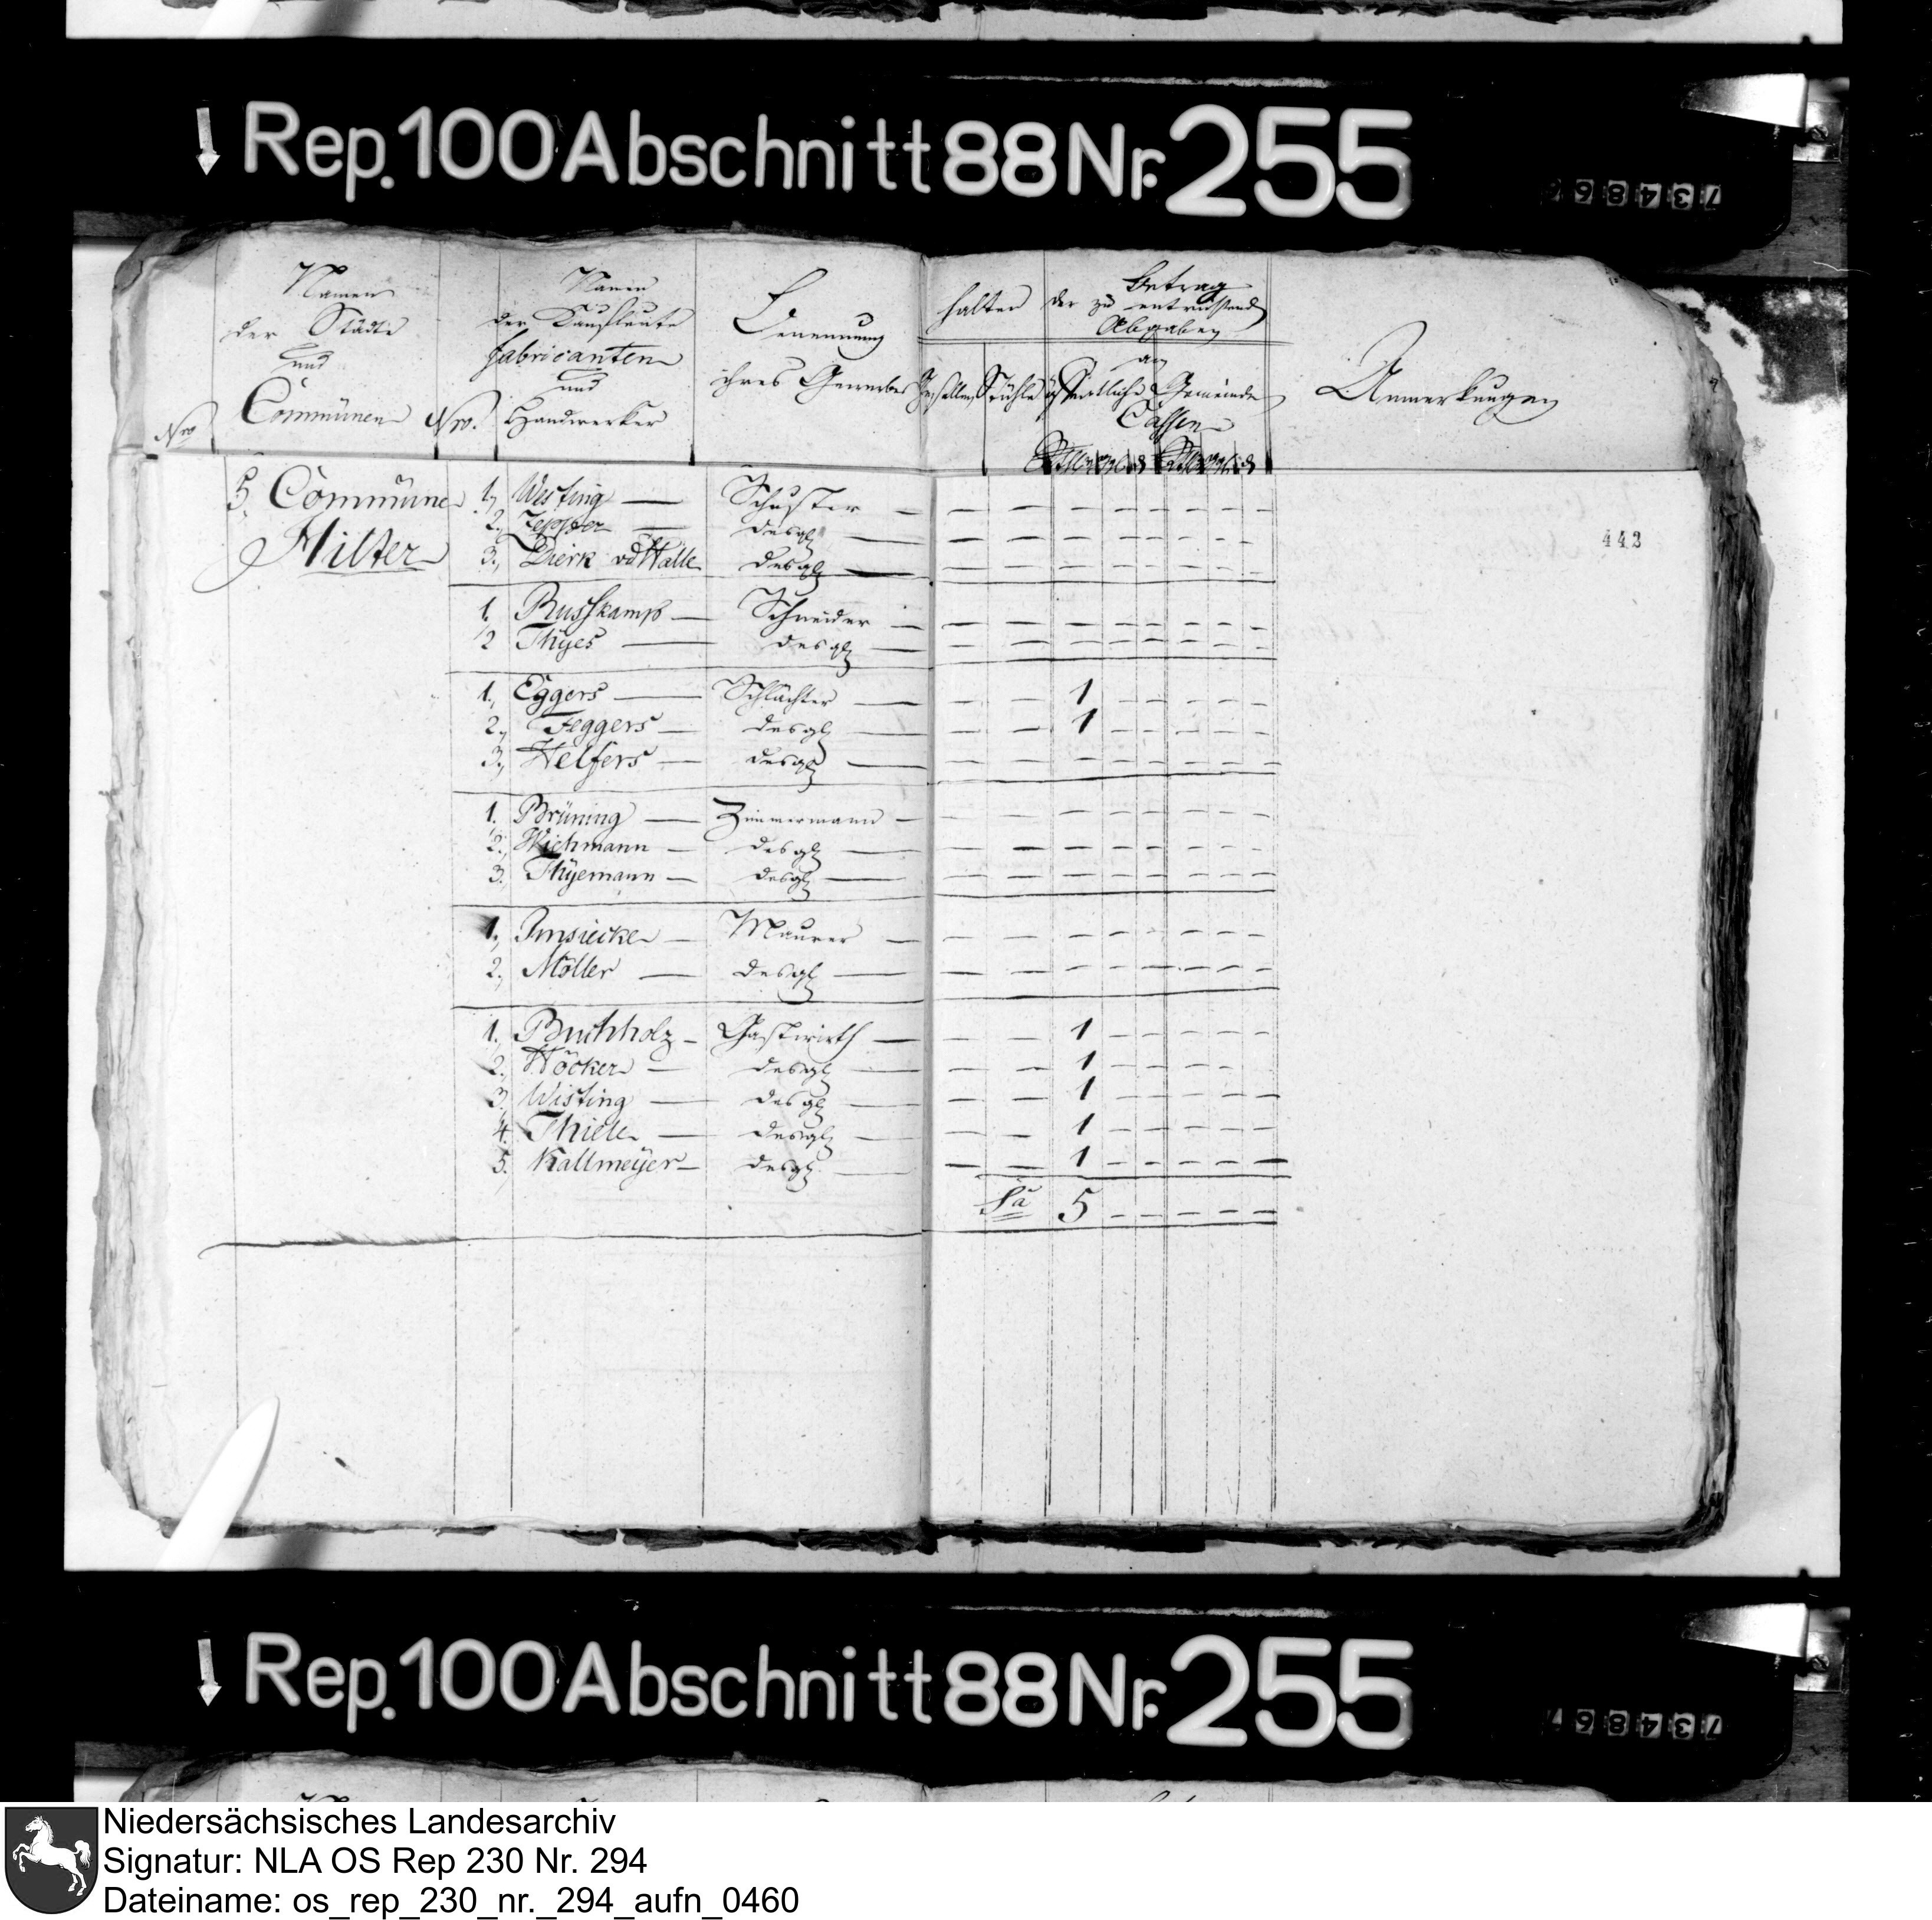 Rep. 100 Abschnitt 88 Nr. 255
734866
Namen der Städte und Communen
Nro
Nro. Namen der Kaufleute Fabricanten und Handwerker
Benennung ihres Gewerbes
halten
Gesellen Stühle
Betrag der zu entrichtend Abgaben
an
öffentliche Gemeinde
Cassen
Anmerkungen
442
5. Commune Hilter
1, Westing — Schuster — — — — — — — — —
2. — desgl — — — — — — — — —
3., Dierk vd Halle desgl — — — — — — — — —
1. Russkamp — Schneider — — — — — — — — —
2 Thÿes — desgl — — — — — — — — —
1., Eggers — Schlächter — — — 1 — — — — —
2., Feggers — desgl — — — 1 — — — — —
3., Helfers — desgl — — — — — — — — —
1. Brüning — Zimmermann — — — — — — — — —
2., Wichmann — desgl — — — — — — — — —
3. Thÿemann — desgl — — — — — — — — —
1., Imsiecke — Maurer — — — — — — — — —
2., Möller — desgl — — — — — — — — —
1. Buchholz — Gastwirth — — — 1 — — — — —
2., Höcker — desgl — — — 1 — — — — —
3. Wisting — desgl — — — 1 — — — — —
4. Thiele — desgl — — — 1 — — — — —
5. Kallmeÿer — desgl — — — 1 — — — — —
Sa 5 — — — — —
Rep. 100 Abschnitt 88 Nr. 255
734867
Niedersächsisches Landesarchiv
Signatur: NLA OS Rep 230 Nr. 294
Dateiname: os_rep_230_nr._294_aufn_0460